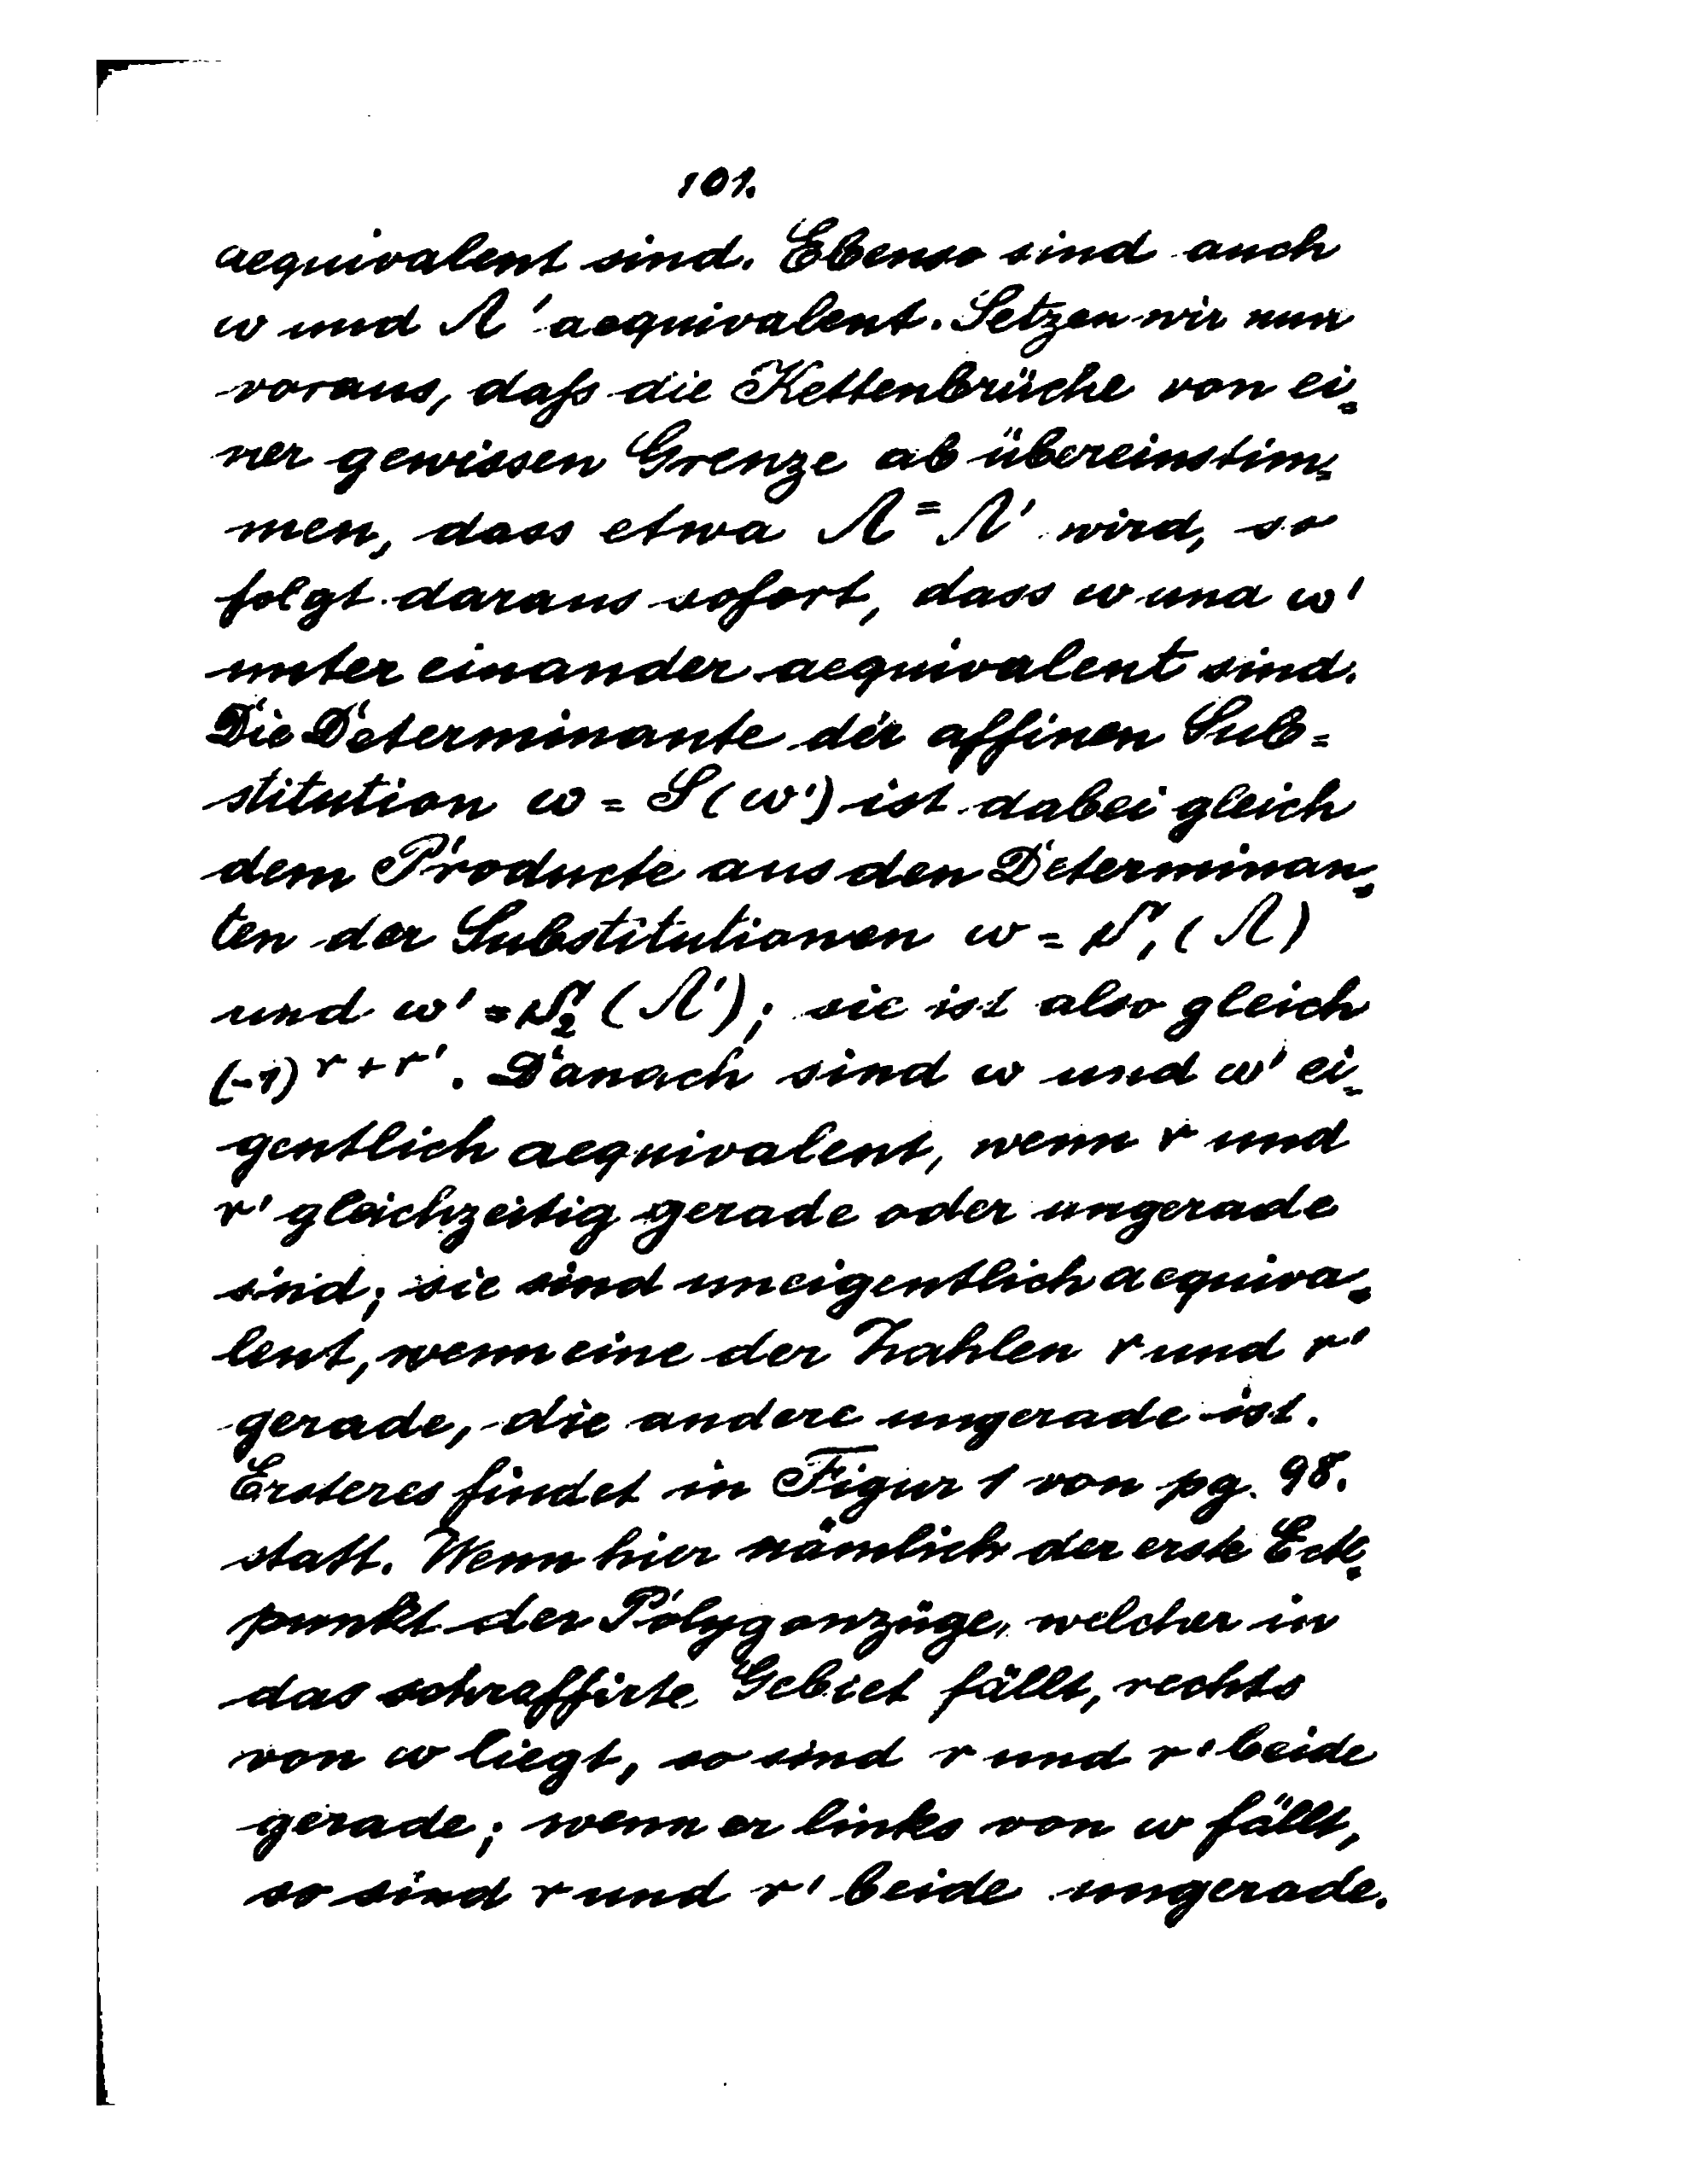 101.
aequivalent sind. Ebenso sind auch
ω und Λ' aequivalent. Setzen wir nun
voraus, daſs die Kettenbrüche von ei=
ner gewissen Grenze ab übereinstim=
men, dass etwa Λ = Λ' wird, so
folgt daraus sofort, dass ω und ω'
unter einander aequivalent sind.
Die Determinante der affinen Sub=
stitution ω = S(ω') ist dabei gleich
dem Producte aus den Determinan=
ten der Substitutionen ω = S₁(Λ)
und ω' = S₂(Λ'); sie ist also gleich
(-1)^{r+r'}. Danach sind ω und ω' ei=
gentlich aequivalent, wenn r und
r' gleichzeitig gerade oder ungerade
sind; sie sind uneigentlich aequiva=
lent, wenn eine der Zahlen r und r'
gerade, die andere ungerade ist.
Ersteres findet in Figur 1 von pg. 98.
statt. Wenn hier nämlich der erste Eck=
punkt der Polygonzüge, welcher in
das schraffirte Gebiet fällt, rechts
von ω liegt, so sind r und r' beide
gerade; wenn er links von ω fällt,
so sind r und r' beide ungerade.